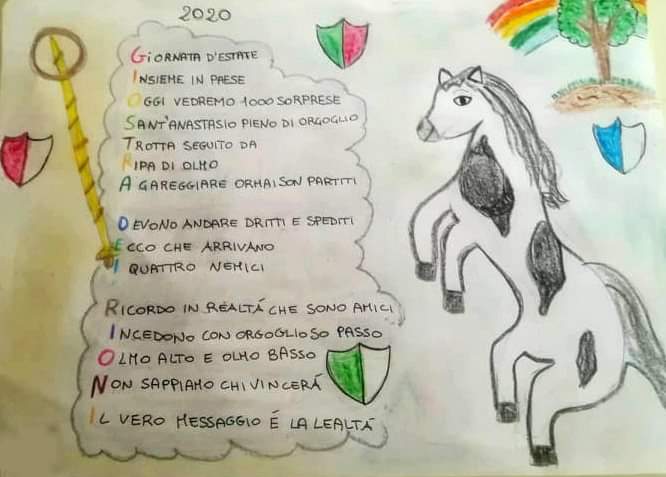 2020
GIORNATA D'ESTATE
INSIEME IN PAESE
OGGI VEDREMO 1000 SORPRESE
SANT'ANASTASIO PIENO DI ORGOGLIO
TROTTA SEGUITO DA
RIPA DI OLMO
A GAREGGIARE ORMAI SON PARTITI
DEVONO ANDARE DRITTI E SPEDITI
ECCO CHE ARRIVANO
I QUATTRO NEMICI
RICORDO IN REALTÁ CHE SONO AMICI
INCEDONO CON ORGOGLIOSO PASSO
OLMO ALTO E OLMO BASSO
NON SAPPIAMO CHI VINCERÁ
IL VERO MESSAGGIO É LA LEALTÁ